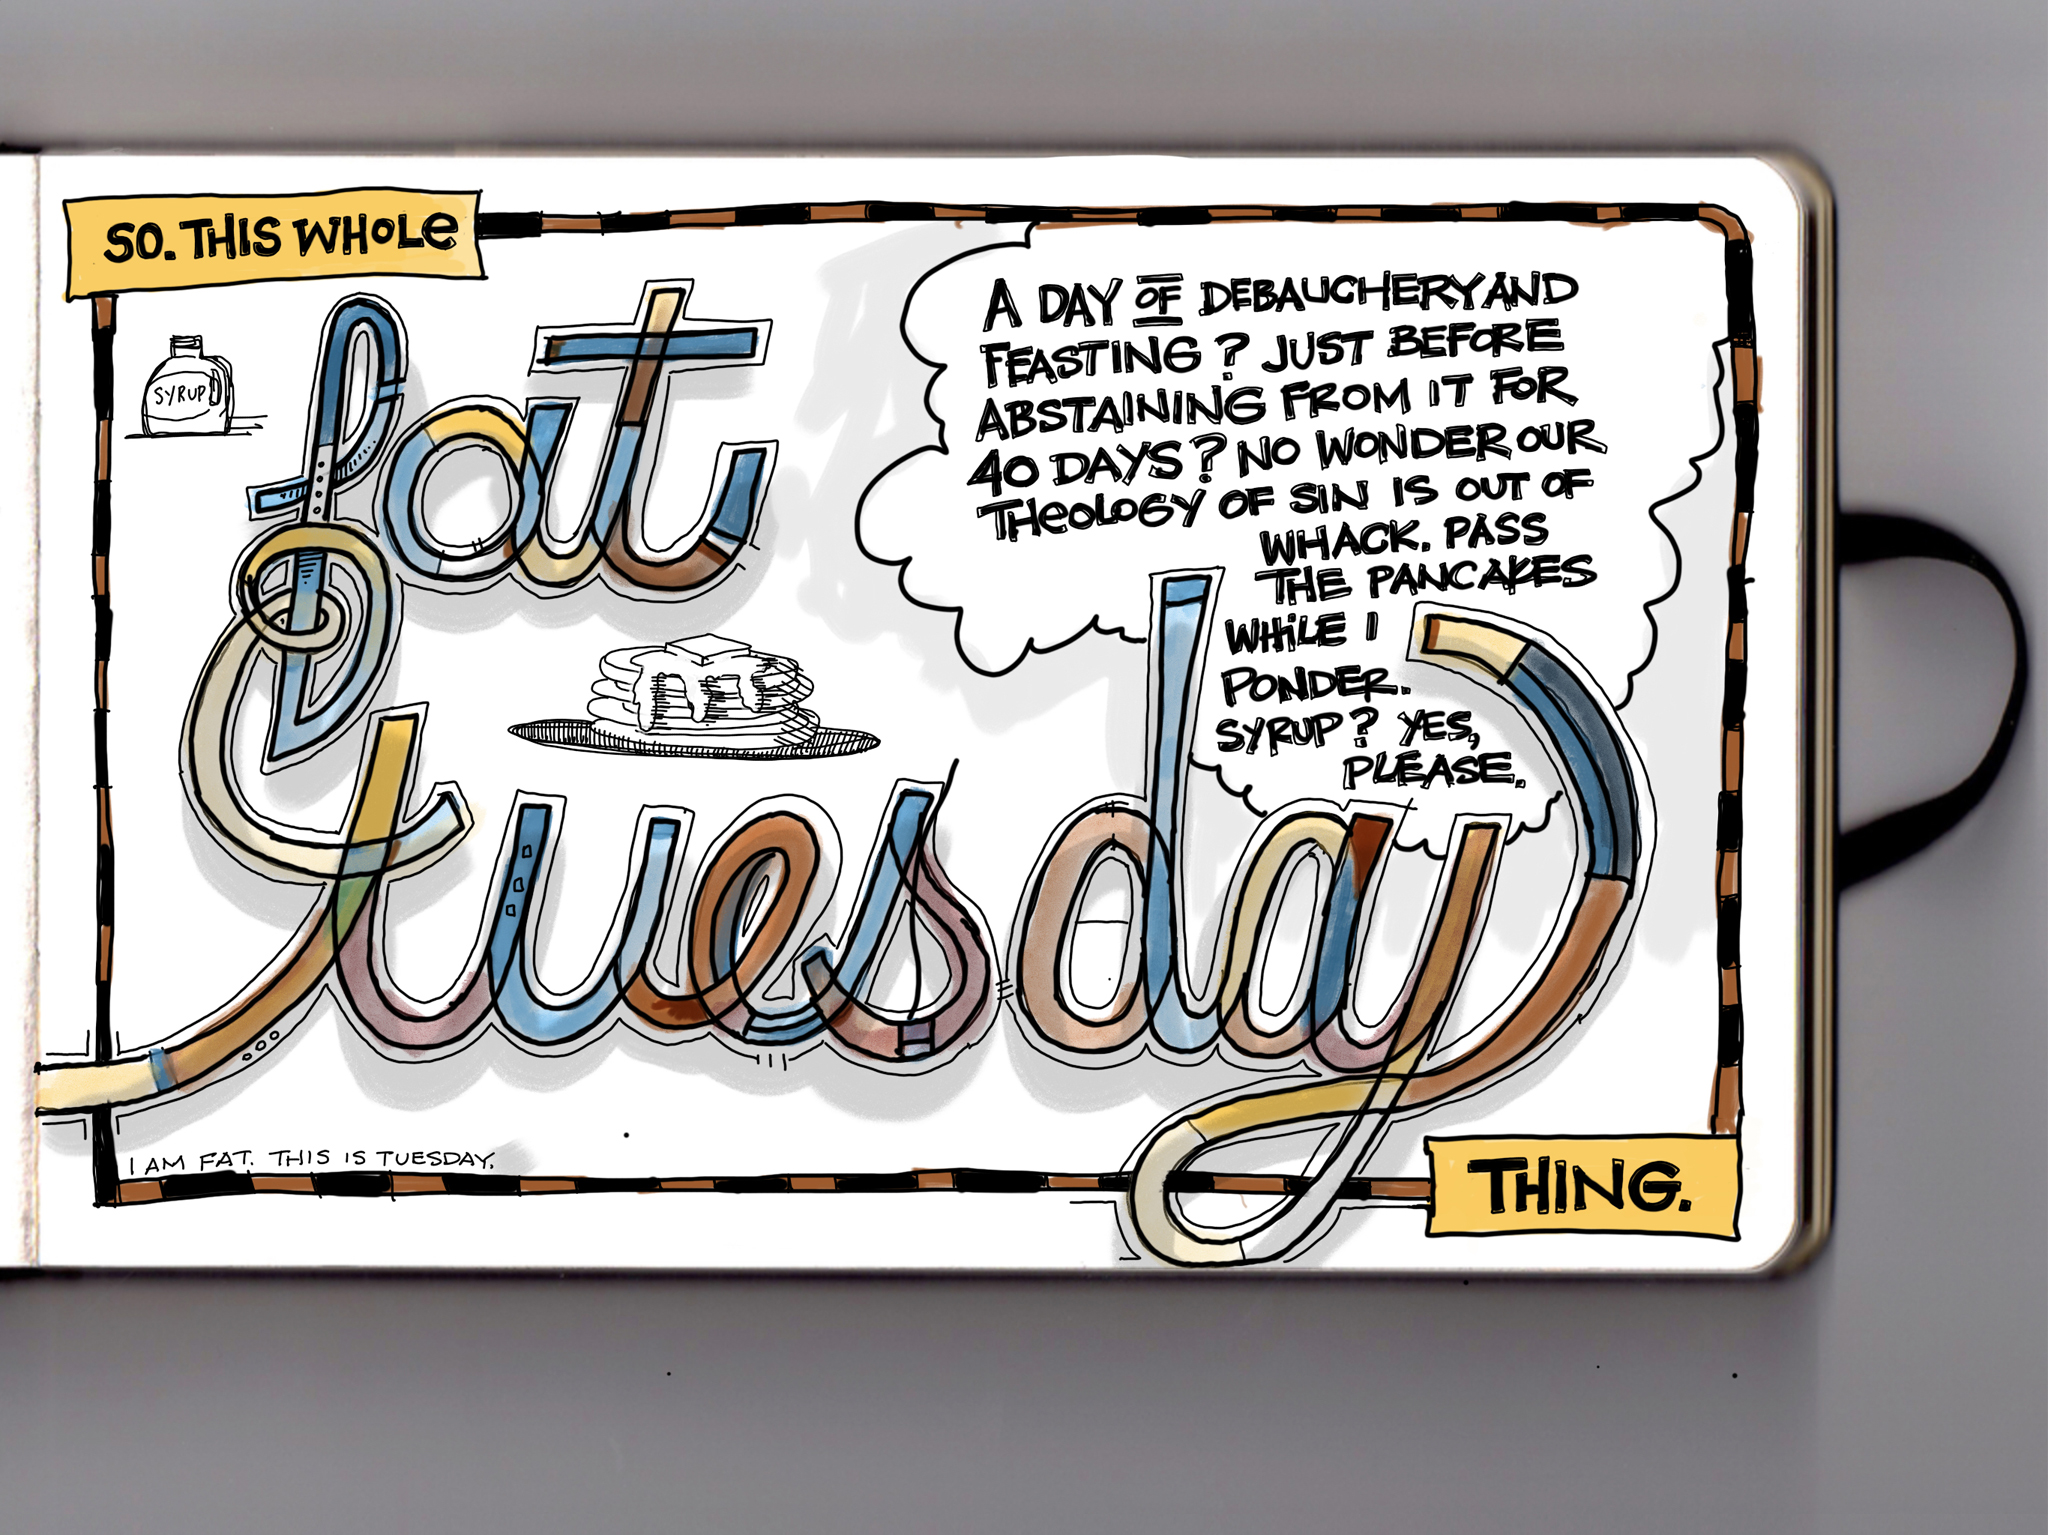 SO. THIS WHOLE
SYRUP
fat
tuesday
A DAY OF DEBAUCHERY AND
FEASTING? JUST BEFORE
ABSTAINING FROM IT FOR
40 DAYS? NO WONDER OUR
THEOLOGY OF SIN IS OUT OF
WHACK. PASS
THE PANCAKES
WHILE I
PONDER.
SYRUP? YES,
PLEASE.
I AM FAT. THIS IS TUESDAY.
THING.